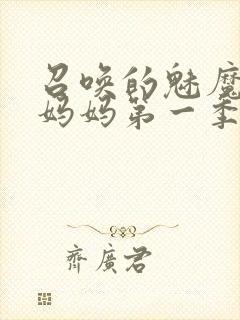 召唤的魅魔
妈妈第一季
齊廣君